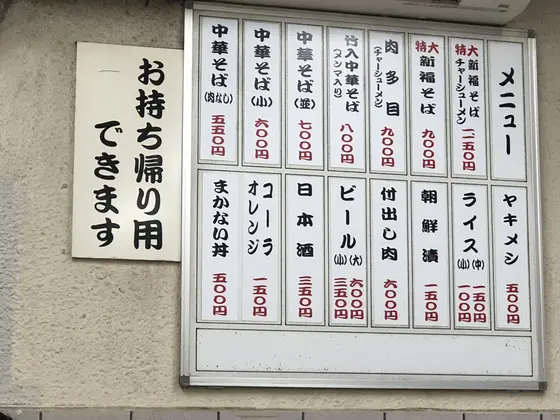 メニュー
特大 新福そば
チャーシューメン 一二五〇円
特大 新福そば 九〇〇円
肉多目
(チャーシューメン) 九〇〇円
竹入中華そば
(メンマ入り) 八〇〇円
中華そば(並) 七〇〇円
中華そば(小) 六〇〇円
中華そば(肉なし) 五五〇円
ヤキメシ 五〇〇円
ライス(中) 一五〇円
(小) 一〇〇円
朝鮮漬 一五〇円
付出し肉 六〇〇円
ビール(大) 六〇〇円
(小) 三五〇円
日本酒 三五〇円
コーラ
オレンジ 一五〇円
まかない丼 五〇〇円
お持ち帰り用
できます